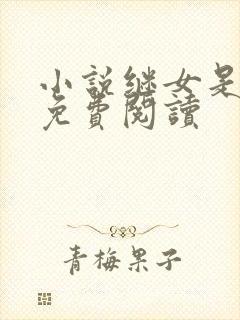 小説継女是
免費閱讀
青梅果子